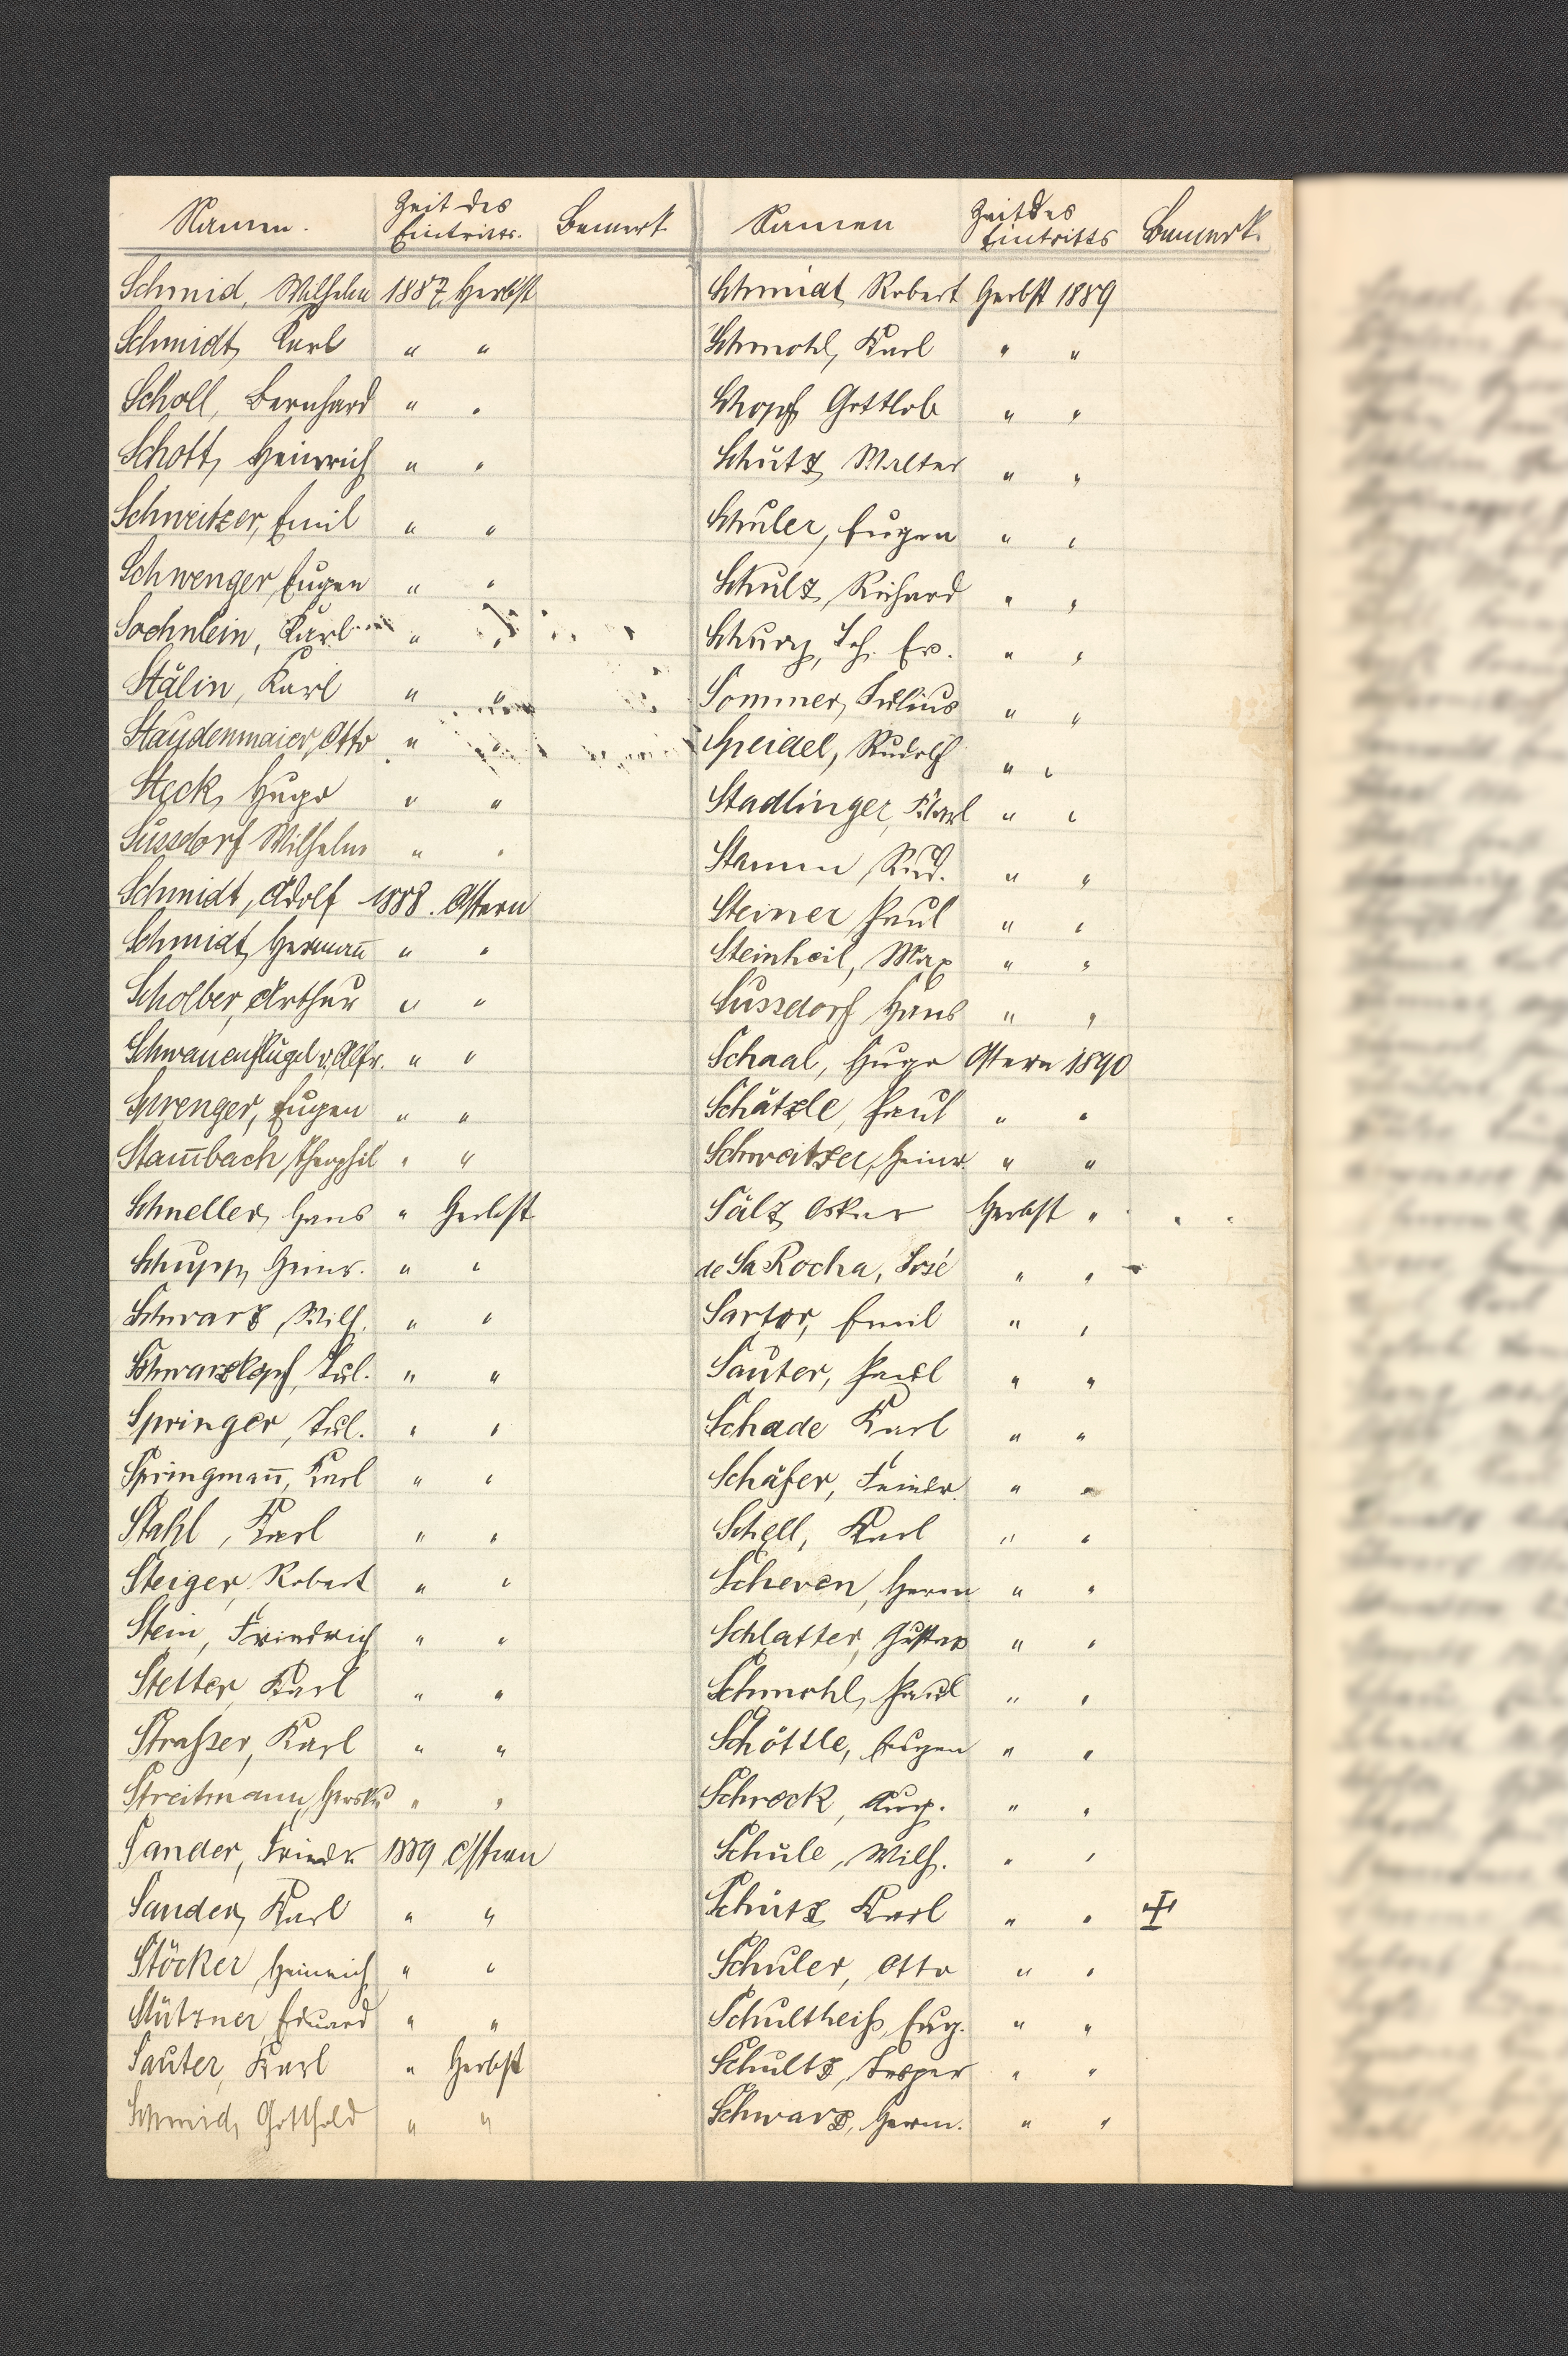 Namen. Zeit des Eintritts. Bemerk.
Schmid, Wilhelm 1887, Herbst
Schmidt, Karl " "
Scholl, Bernhard " "
Schott, Heinrich " "
Schweitzer, Emil " "
Schwenger, Eugen " "
Sochnlein, Karl " "
Stälin, Karl " "
Staudenmaier, Otto " "
Steck, Hugo " "
Sussdorf Wilhelm " "
Schmidt, Adolf 1888. Ostern
Schmidt, Herman̄ " "
Scholber, Arthur " "
Schwanenflügel v. Alfr. " "
Sprenger, Eugen " "
Stam̄bach, Theophil " "
Schneller, Hans " Herbst
Schupp, Heinr. " "
Schwarz, Wilh. " "
Schwarzkopf, Jul. " "
Springer, Jul. " "
Springman̄, Karl " "
Stahl, Karl " "
Steiger, Robert " "
Stein, Friedrich " "
Stetter, Karl " "
Straßer, Karl " "
Streitmann, " "
Sander, Friedr 1889 Ostern
Sander, Karl " "
Stöcker Heinrich " "
Stützner, Eduard " "
Sauter, Karl " Herbst
Schmid, Gotthold " "
Namen Zeit des Eintritts Bemerk.
Schmidt, Robert Herbst 1889
Schmohl, Karl " "
Schopf, Gottlob " "
Schütz, Walter " "
Schuler, Eugen " "
Schulz, Richard " "
Schurg, Joh. Ev. " "
Sommer, Julius " "
Speidel, Rudolf " "
Stadlinger, Karl " "
Stamm Rud. " "
Steiner Paul " "
Steinheil, Max " "
Sussdorf Hans " "
Schaal, Hugo Ostern 1890
Schätzle, Paul " "
Schweitzer, Heinr. " "
Sälz, Oskar Herbst "
de Sa Rocha, José " "
Sartor, Emil " "
Sauter, Paul " "
Schade Karl " "
Schäfer, Friedr. " "
Schell, Karl " "
Scheren, Herm " "
Schlatter, Gustav " "
Schmohl, Paul " "
Schöttle, Eugen " "
Schrock, Aug. " "
Schüle, Wilh. " "
Schütz, Karl " "
Schuler, Otto " "
Schultheiß, Eug. " "
Schultz, Jesper " "
Schwarz, Herm. " "